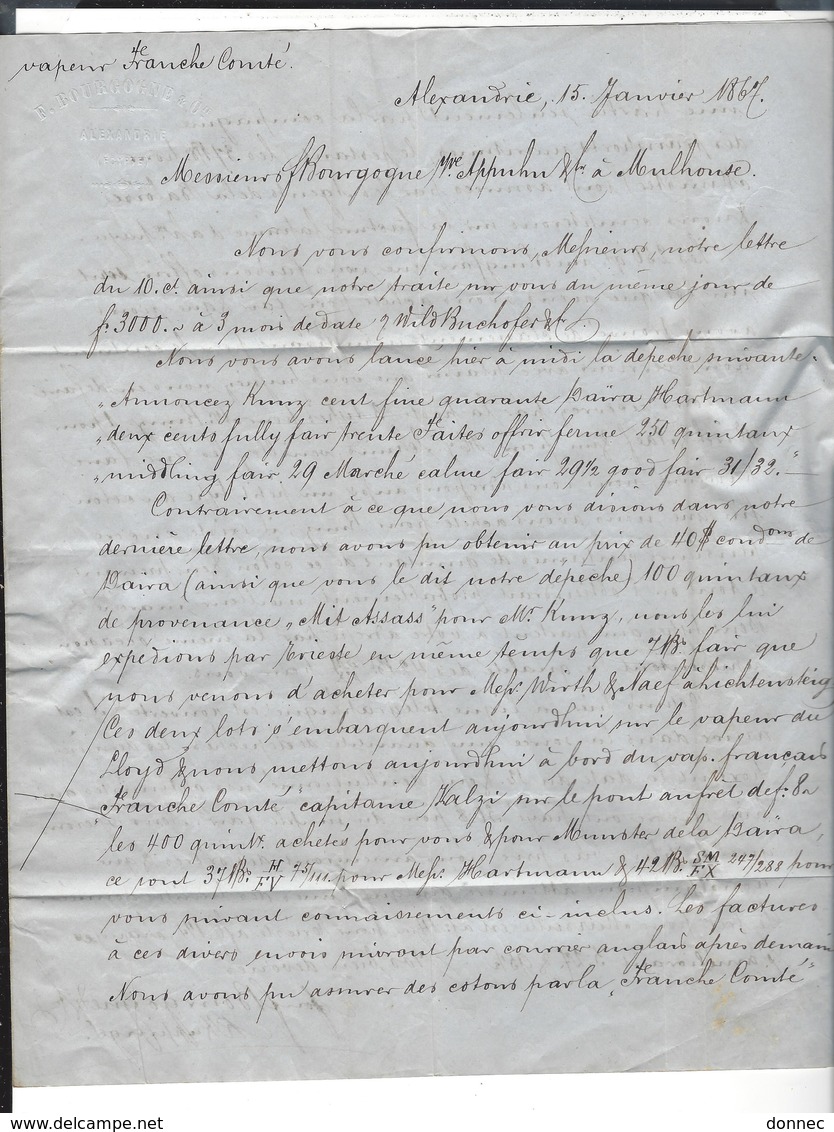 vapeur Franche Comté.
F. BOURGOGNE & Cie
ALEXANDRIE
Alexandrie, 15. Janvier 1867.
Messieurs F Bourgogne, Vve. Appuhn & Cie à Mulhouse.
Nous vous confirmons, Messieurs, notre lettre
du 10. ct. ainsi que notre traite sur vous du même jour de
f. 3000. ~ à 3 mois de date Wild Buchofer & Cie.
Nous vous avons lancé hier à midi la dépeche suivante.
„Annoncez Kunz cent fine quarante Daïra Hartmann
„deux cents fully fair trente Faites offrir ferme 250 quintaux
„middling fair 29 Marché calme fair 29 1/2 good fair 31/32."—
Contrairement à ce que nous vous disions dans notre
dernière lettre, nous avons pu obtenir au prix de 40 $ condons de
Daïra (ainsi que vous le dit notre dépeche) 100 quintaux
de provenance „Mit Assass" pour Mr. Kunz, nous les lui
expédions par Trieste en même temps que 7 Bs. fair que
nous venons d'acheter pour Messs. Wirth & Naef à Lichtensteig
Ces deux lots s'embarquent aujourdhui sur le vapeur du
Lloyd & nous mettons aujourdhui à bord du vap. français
„Franche Comté" capitaine Kalzi sur le pont au frêt de f. 8 ~
les 400 quintx. achetés pour vous & pour Munster de la Daïra,
ce sont 37 Bs. H/FV 75/111. pour Messs. Hartmann & 42 Bs. SM/FX 247/288 pour
vous suivant connaissements ci-inclus. Les factures
à ces divers envois suivront par courrier anglais après demain
Nous avons pu assurer des cotons par la „Franche Comté"
donnec